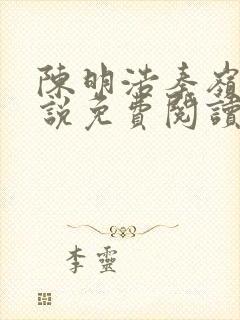 陳明浩秦嶺
說免費閱讀
李靈